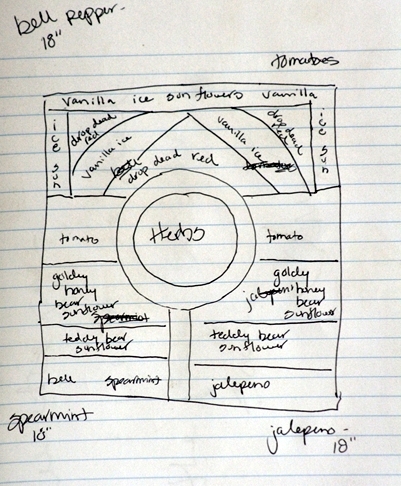 bell pepper -
18"
tomatoes
vanilla ice sunflowers vanilla
ice sun
drop dead red
vanilla ice
drop dead red
vanilla ice
drop dead red
ice sun
tomato
Herbs
tomato
goldy
honey
bear
sunflower
spearmint
goldy
honey
bear
sunflower
teddy bear
sunflower
teddy bear
sunflower
bell spearmint
jalepeno
spearmint
18"
jalepeno -
18"